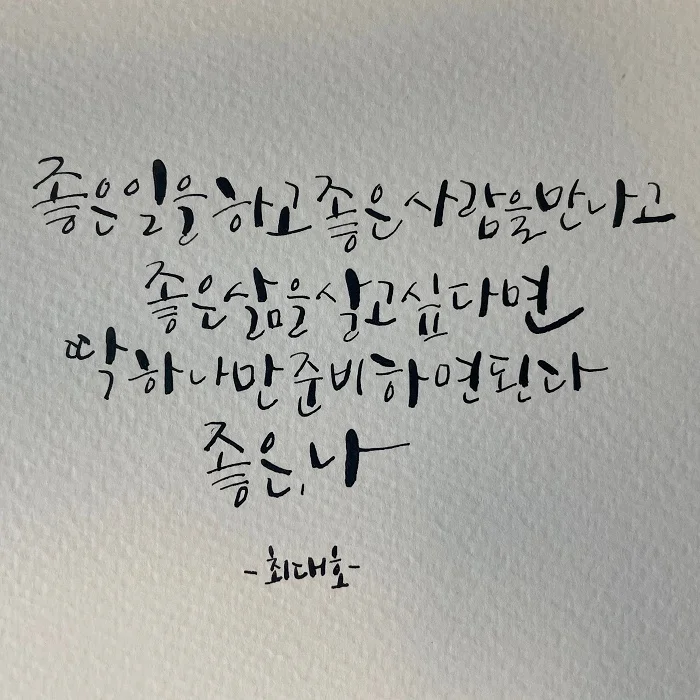 좋은 일을 하고 좋은 사람을 만나고
좋은 삶을 살고 싶다면
딱 하나만 준비하면 된다
좋은, 나
-최대호-